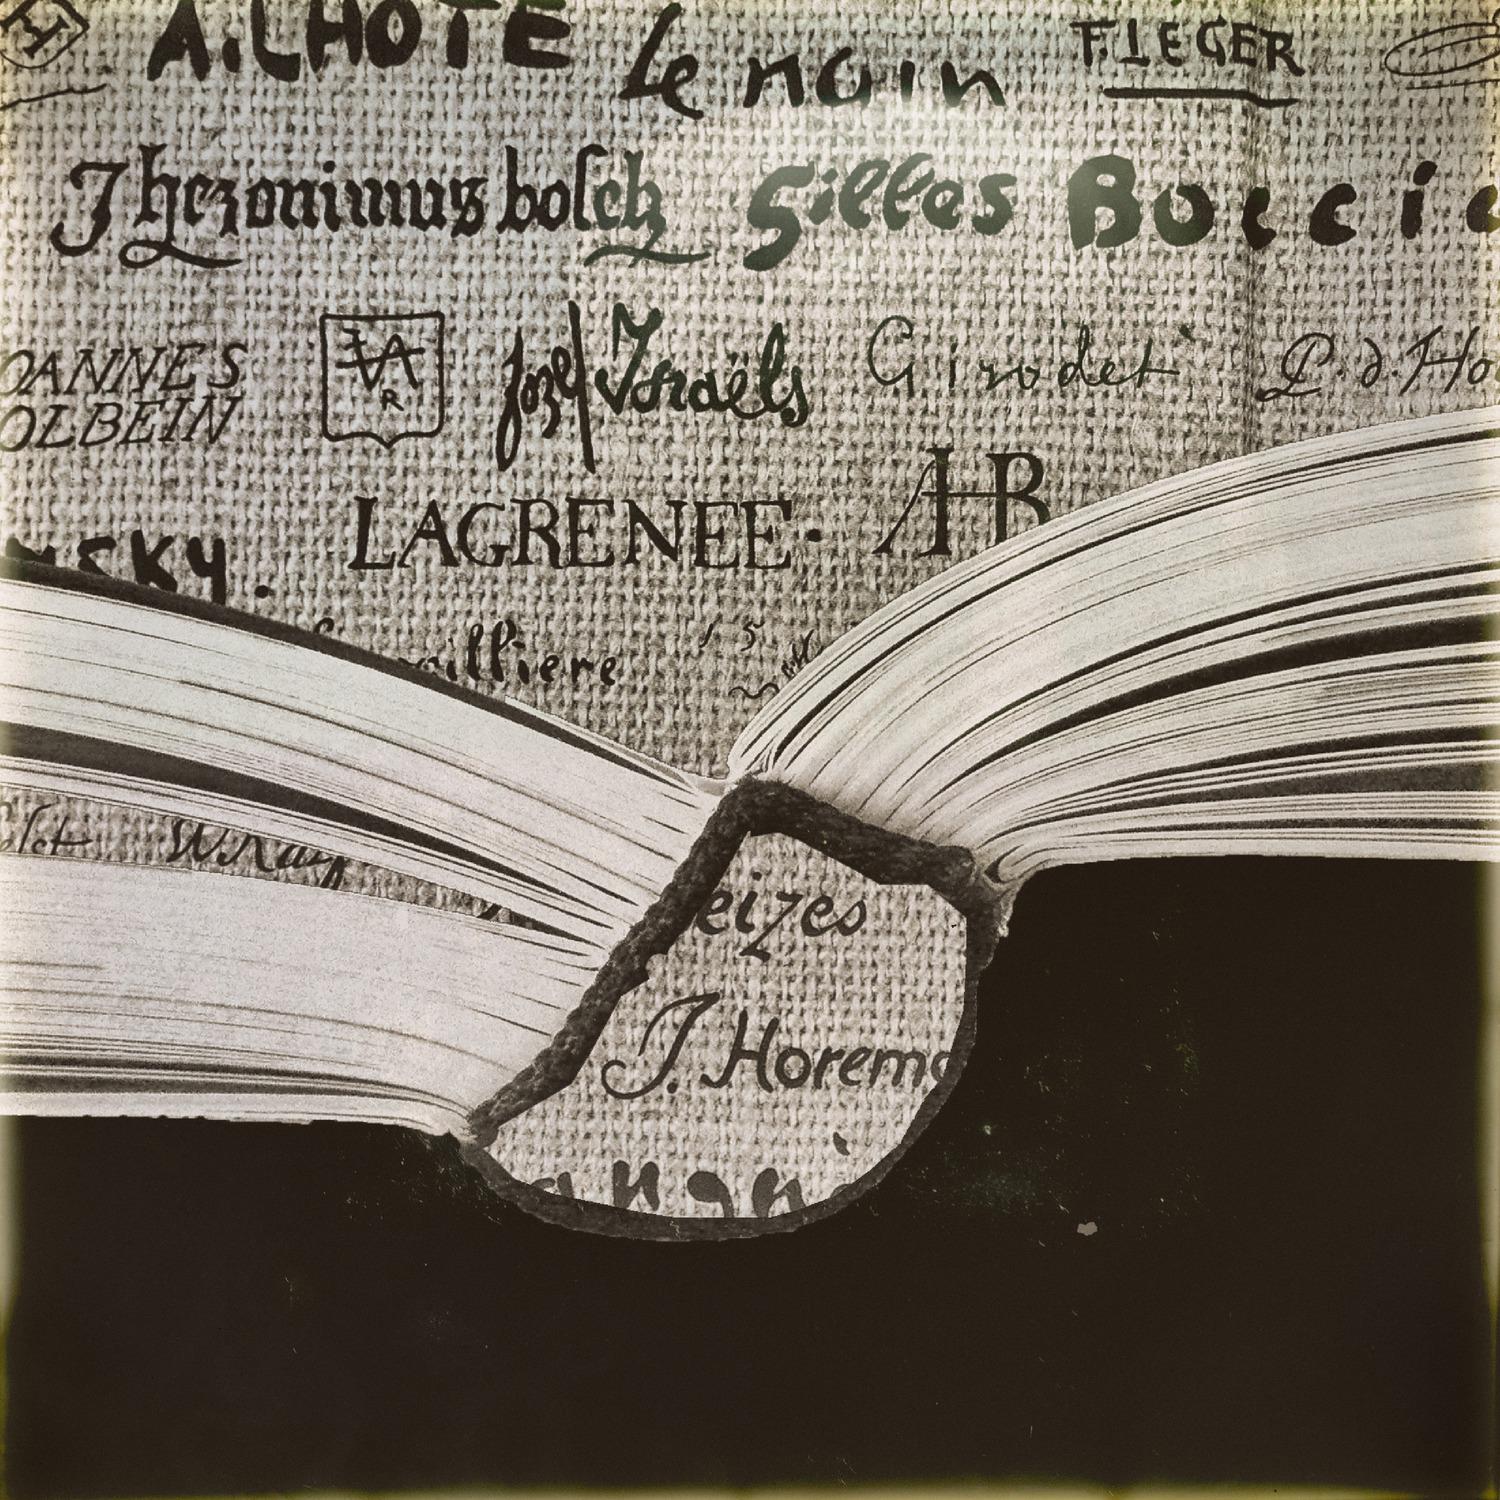 A. LHOTE Le nain F. LEGER
Jheronimus bosch Gilles Boccio
OANNES
OLBEIN
VA
R
Jozef Israëls Girodet P. d. Ho
LAGRENEE. AHB
NSKY.
illiere 15
Wray
eizes
J. Horema